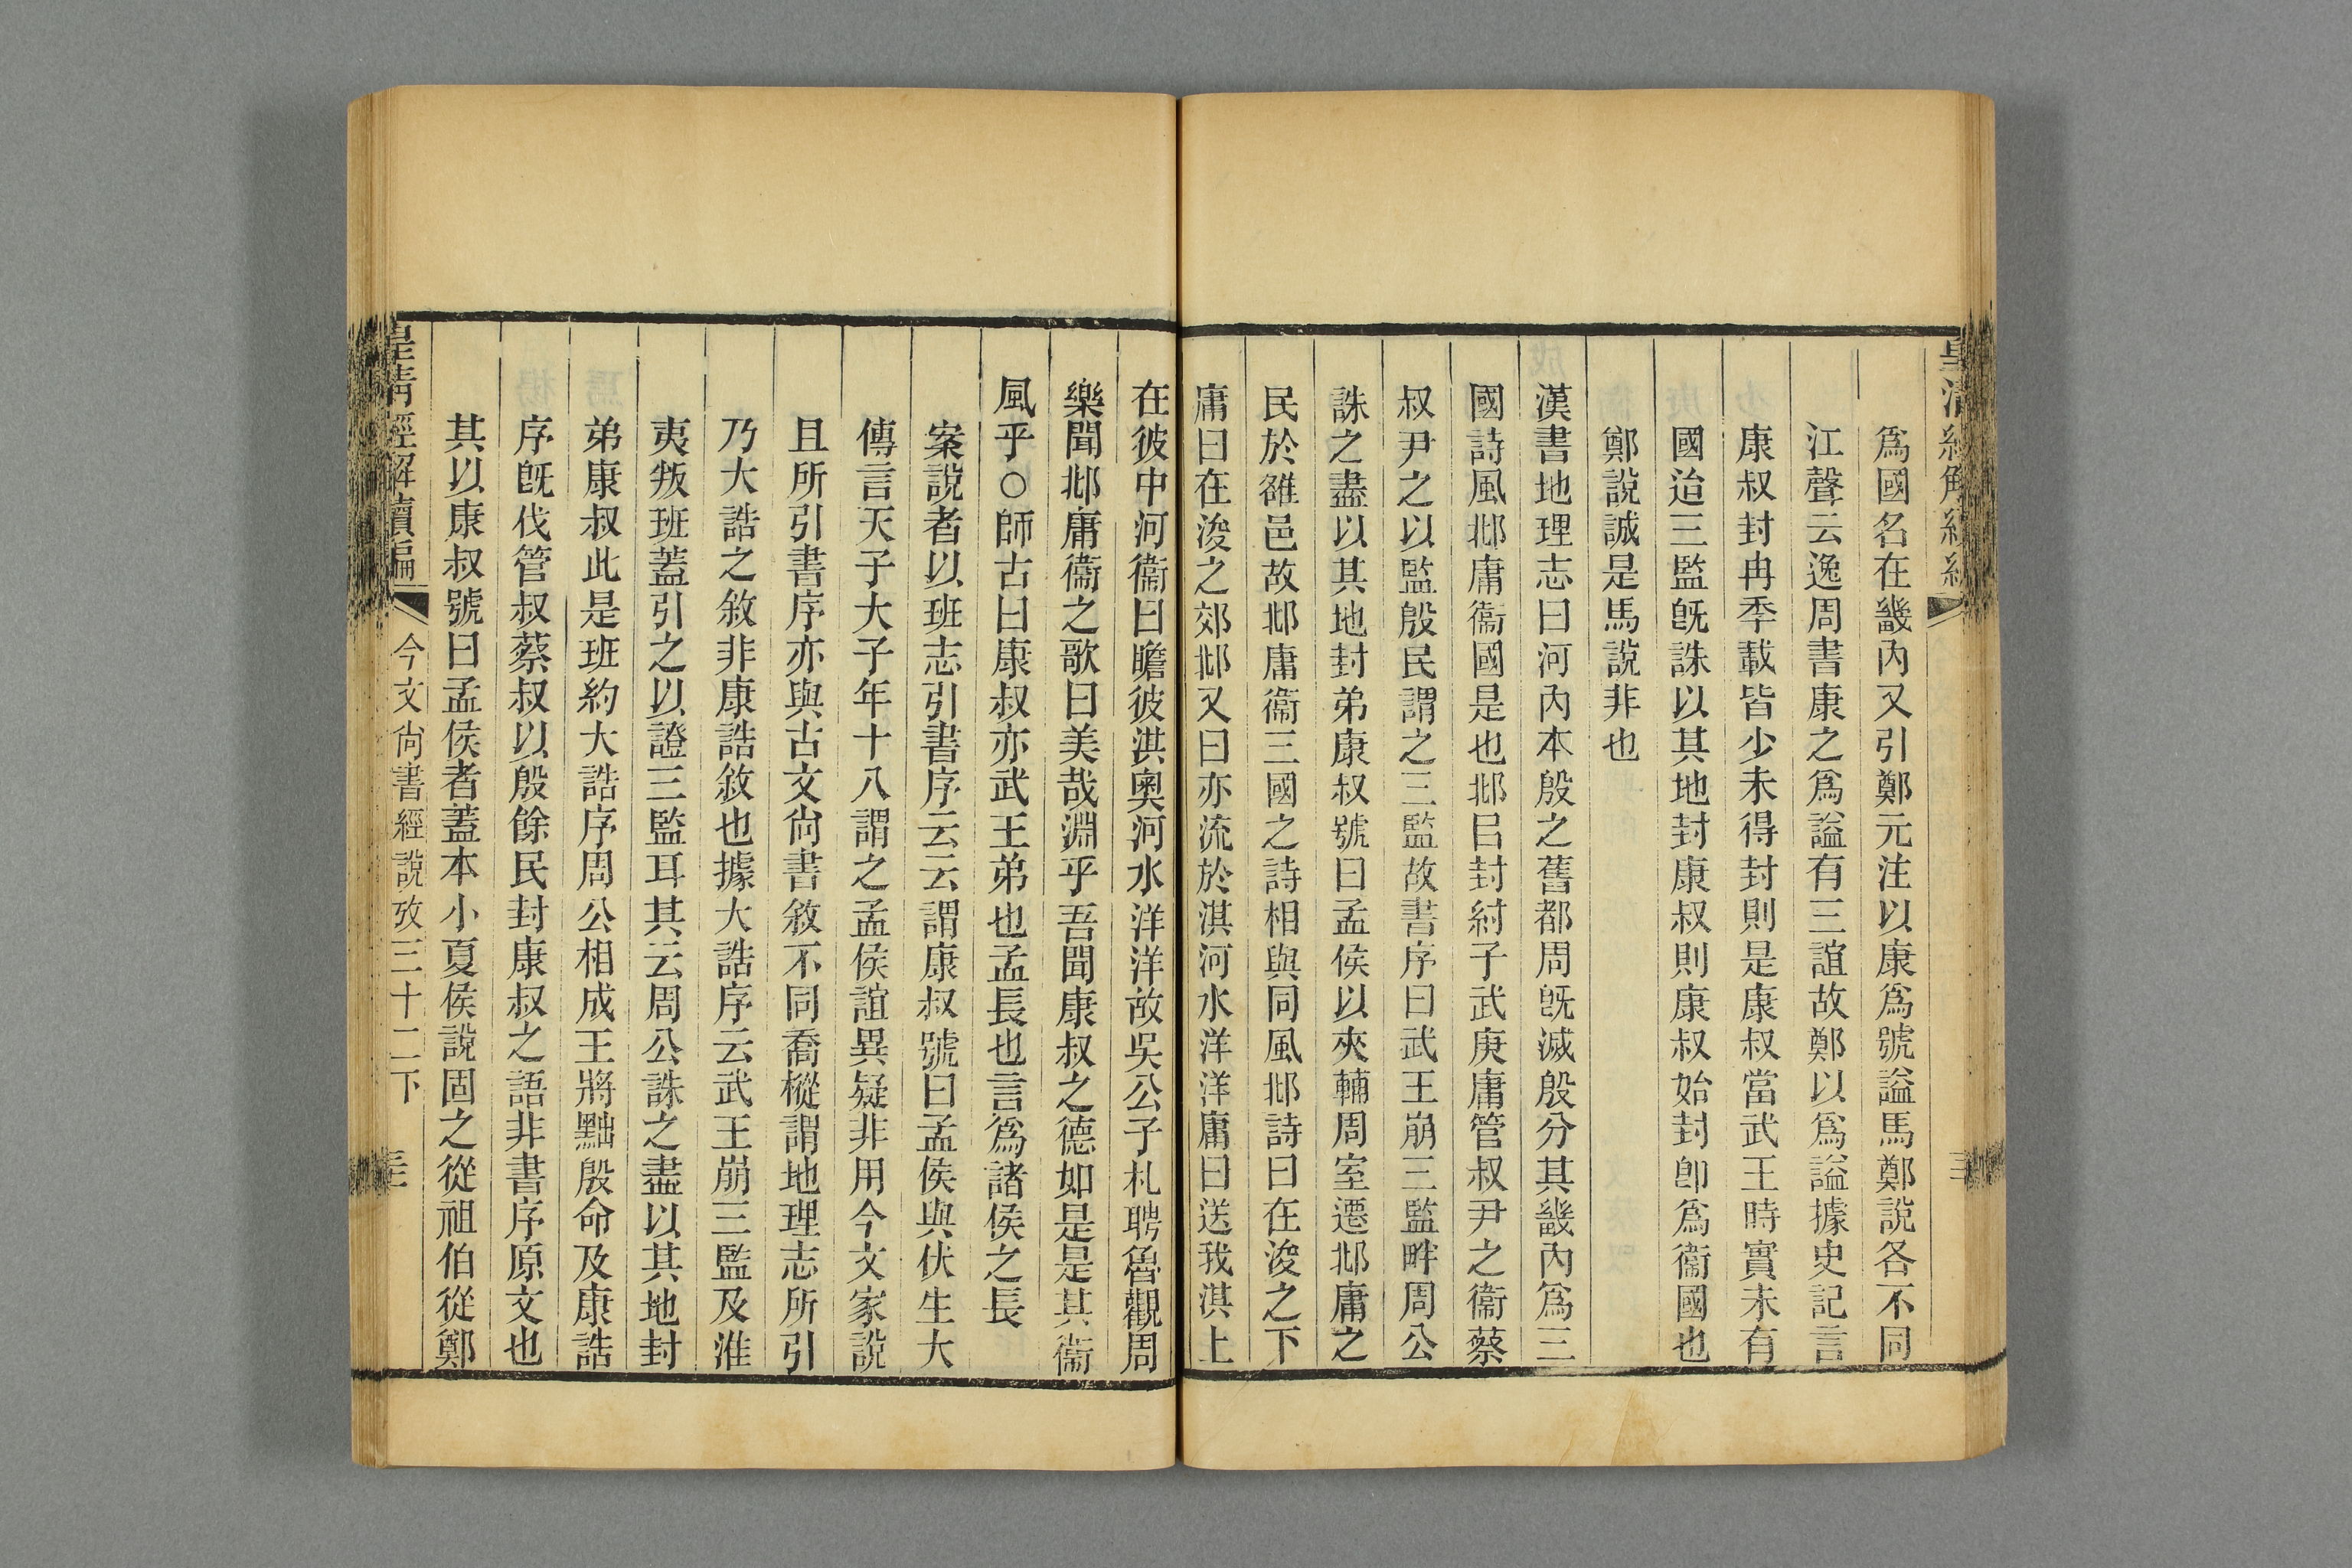 爲國名在畿內又引鄭元注以康爲號謚馬鄭說各不同
江聲云逸周書康之爲謚有三誼故鄭以爲謚據史記言
康叔封冉季載皆少未得封則是康叔當武王時實未有
國迨三監旣誅以其地封康叔則康叔始封卽爲衞國也
鄭說誠是馬說非也
漢書地理志曰河內本殷之舊都周旣滅殷分其畿內爲三
國詩風邶庸衞國是也邶㠯封紂子武庚庸管叔尹之衞蔡
叔尹之以監殷民謂之三監故書序曰武王崩三監畔周公
誅之盡以其地封弟康叔號曰孟侯以夾輔周室遷邶庸之
民於雒邑故邶庸衞三國之詩相與同風邶詩曰在浚之下
庸曰在浚之郊邶又曰亦流於淇河水洋洋庸曰送我淇上
在彼中河衞曰瞻彼淇奧河水洋洋故吳公子札聘魯觀周
樂聞邶庸衞之歌曰美哉淵乎吾聞康叔之德如是是其衞
風乎○師古曰康叔亦武王弟也孟長也言爲諸侯之長
案說者以班志引書序云云謂康叔號曰孟侯與伏生大
傳言天子大子年十八謂之孟侯誼異疑非用今文家說
且所引書序亦與古文尙書敘不同喬樅謂地理志所引
乃大誥之敘非康誥敘也據大誥序云武王崩三監及淮
夷叛班蓋引之以證三監耳其云周公誅之盡以其地封
弟康叔此是班約大誥序周公相成王將黜殷命及康誥
序旣伐管叔蔡叔以殷餘民封康叔之語非書序原文也
其以康叔號曰孟侯者蓋本小夏侯說固之從祖伯從鄭
皇淸經解續編 今文尙書經說攷三十二下